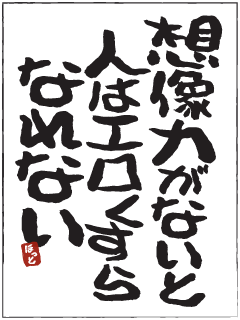 想像力がないと
人はエロくすら
なれない
ほっと